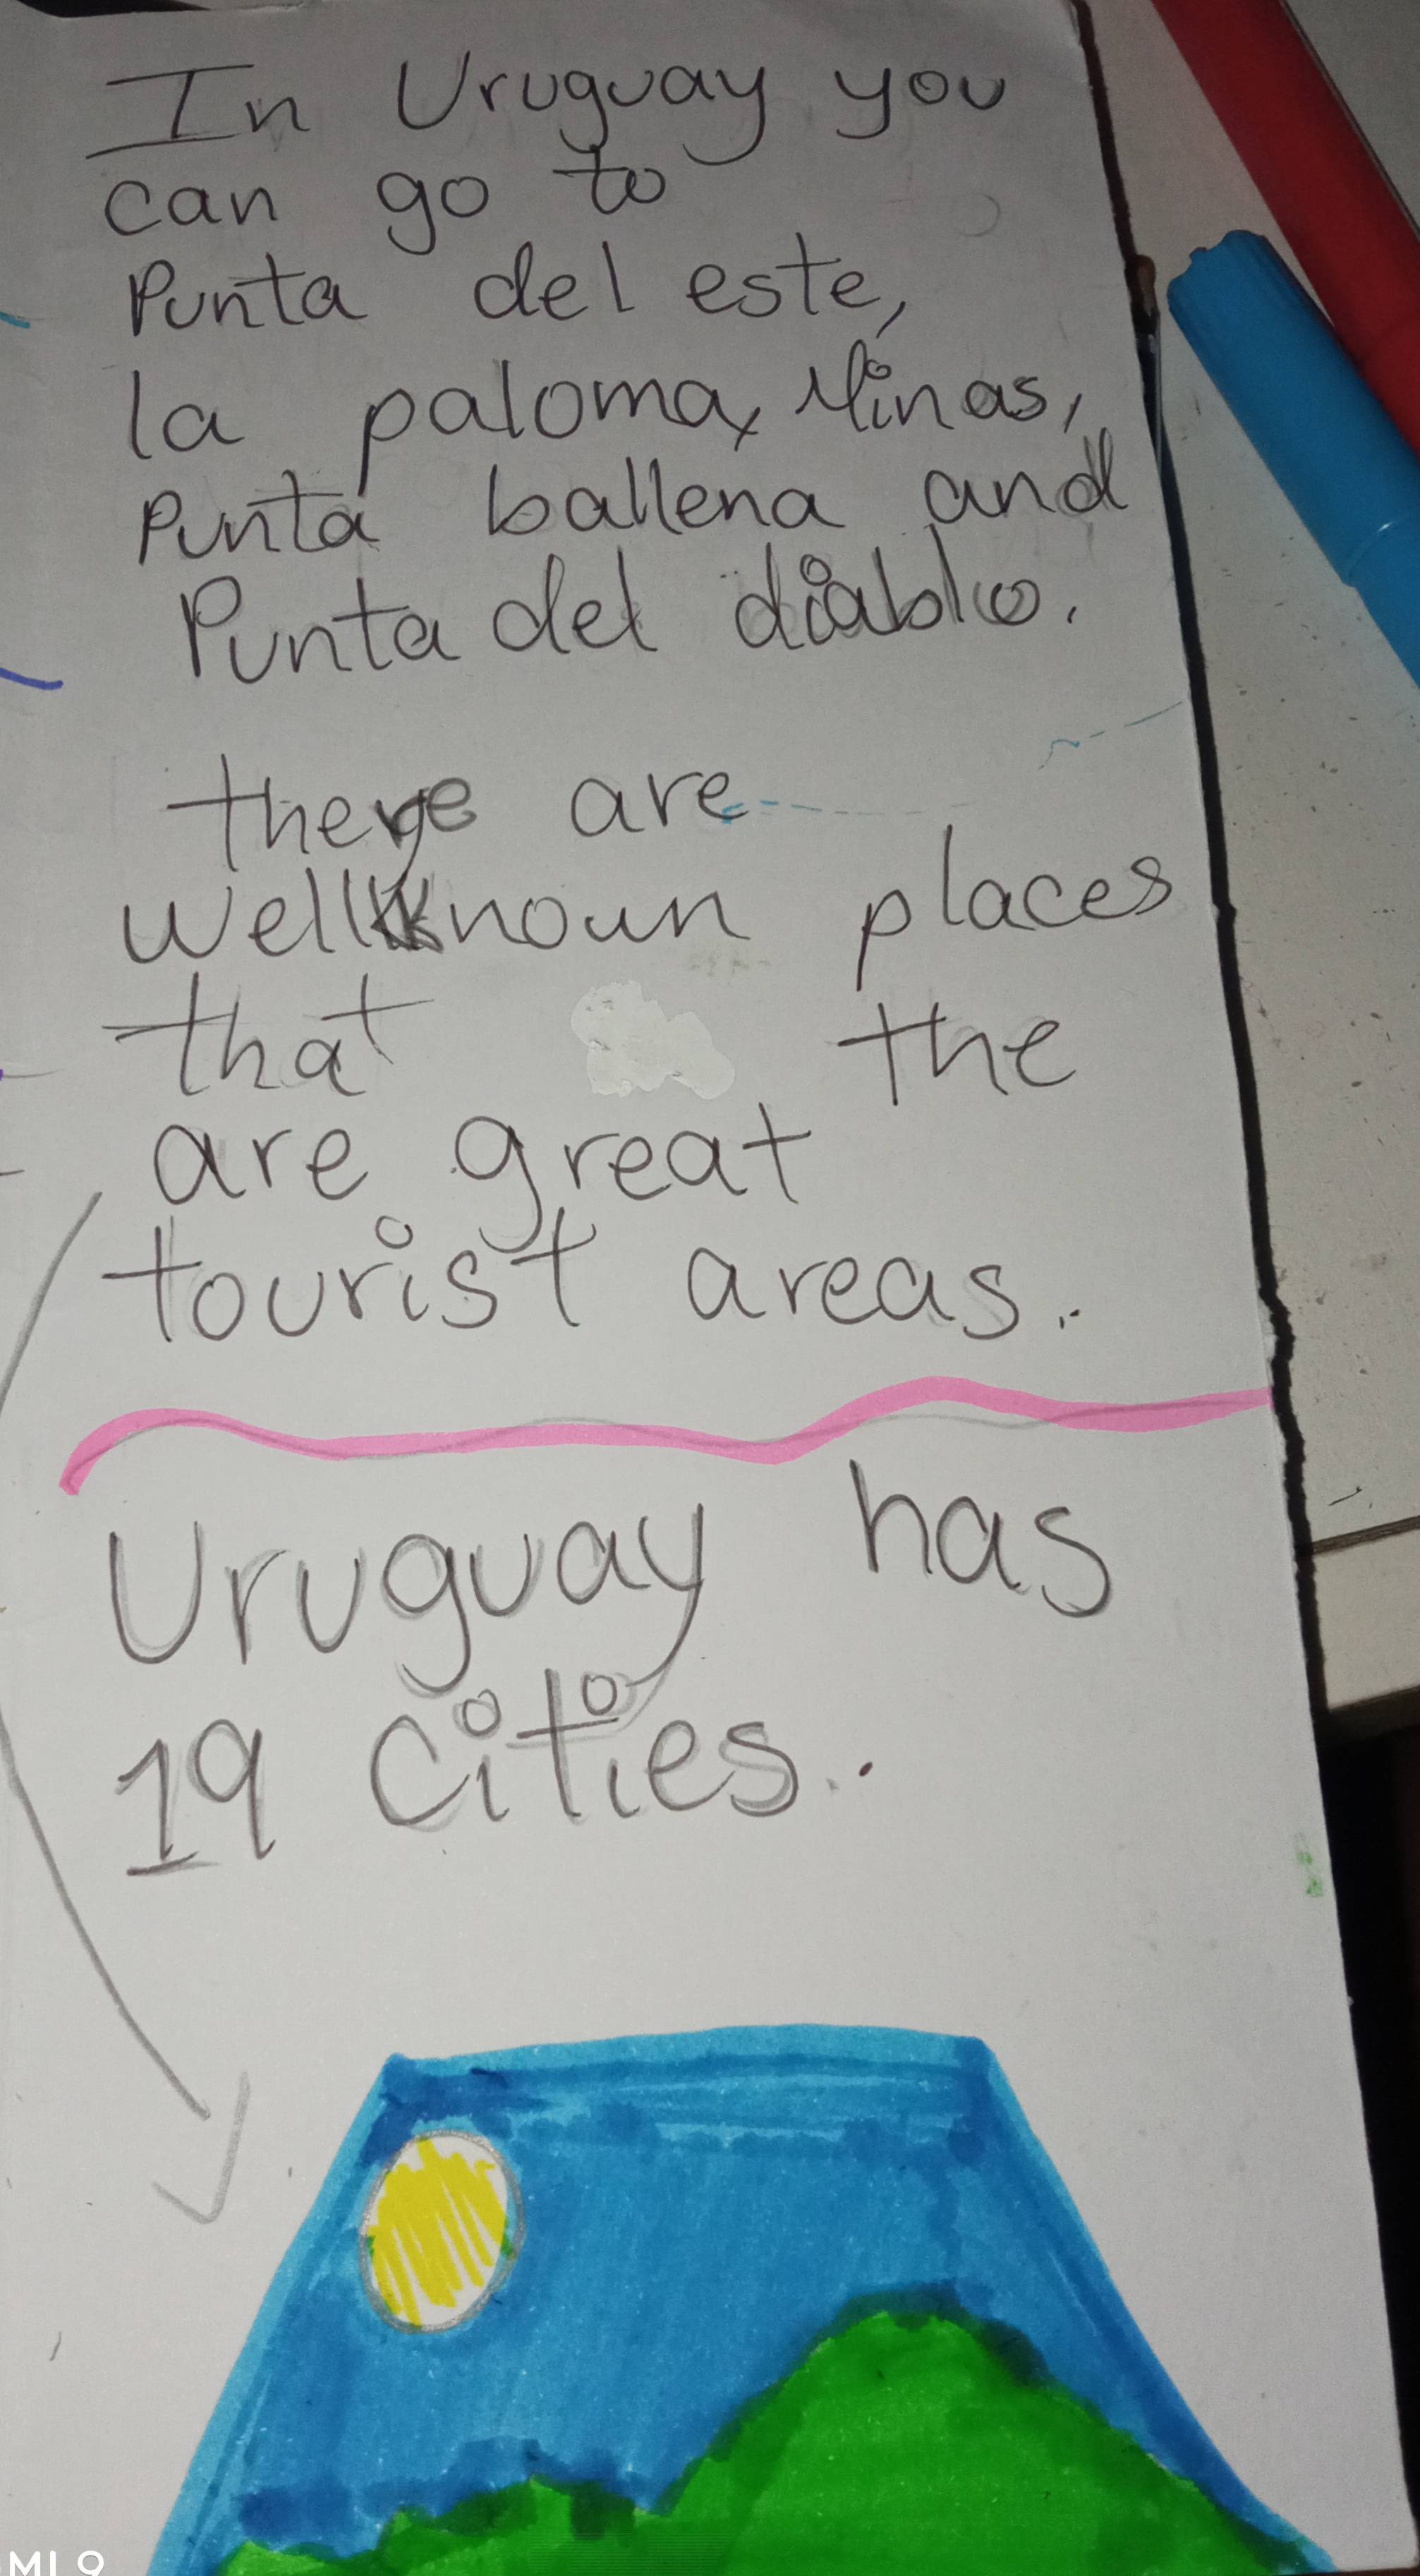 In Uruguay you
can go to
Punta del este,
la paloma, Minas,
Punta ballena and
Punta del diablo.
there are
wellknown places
that the
are great
tourist areas.
Uruguay has
19 cities.
MI 9